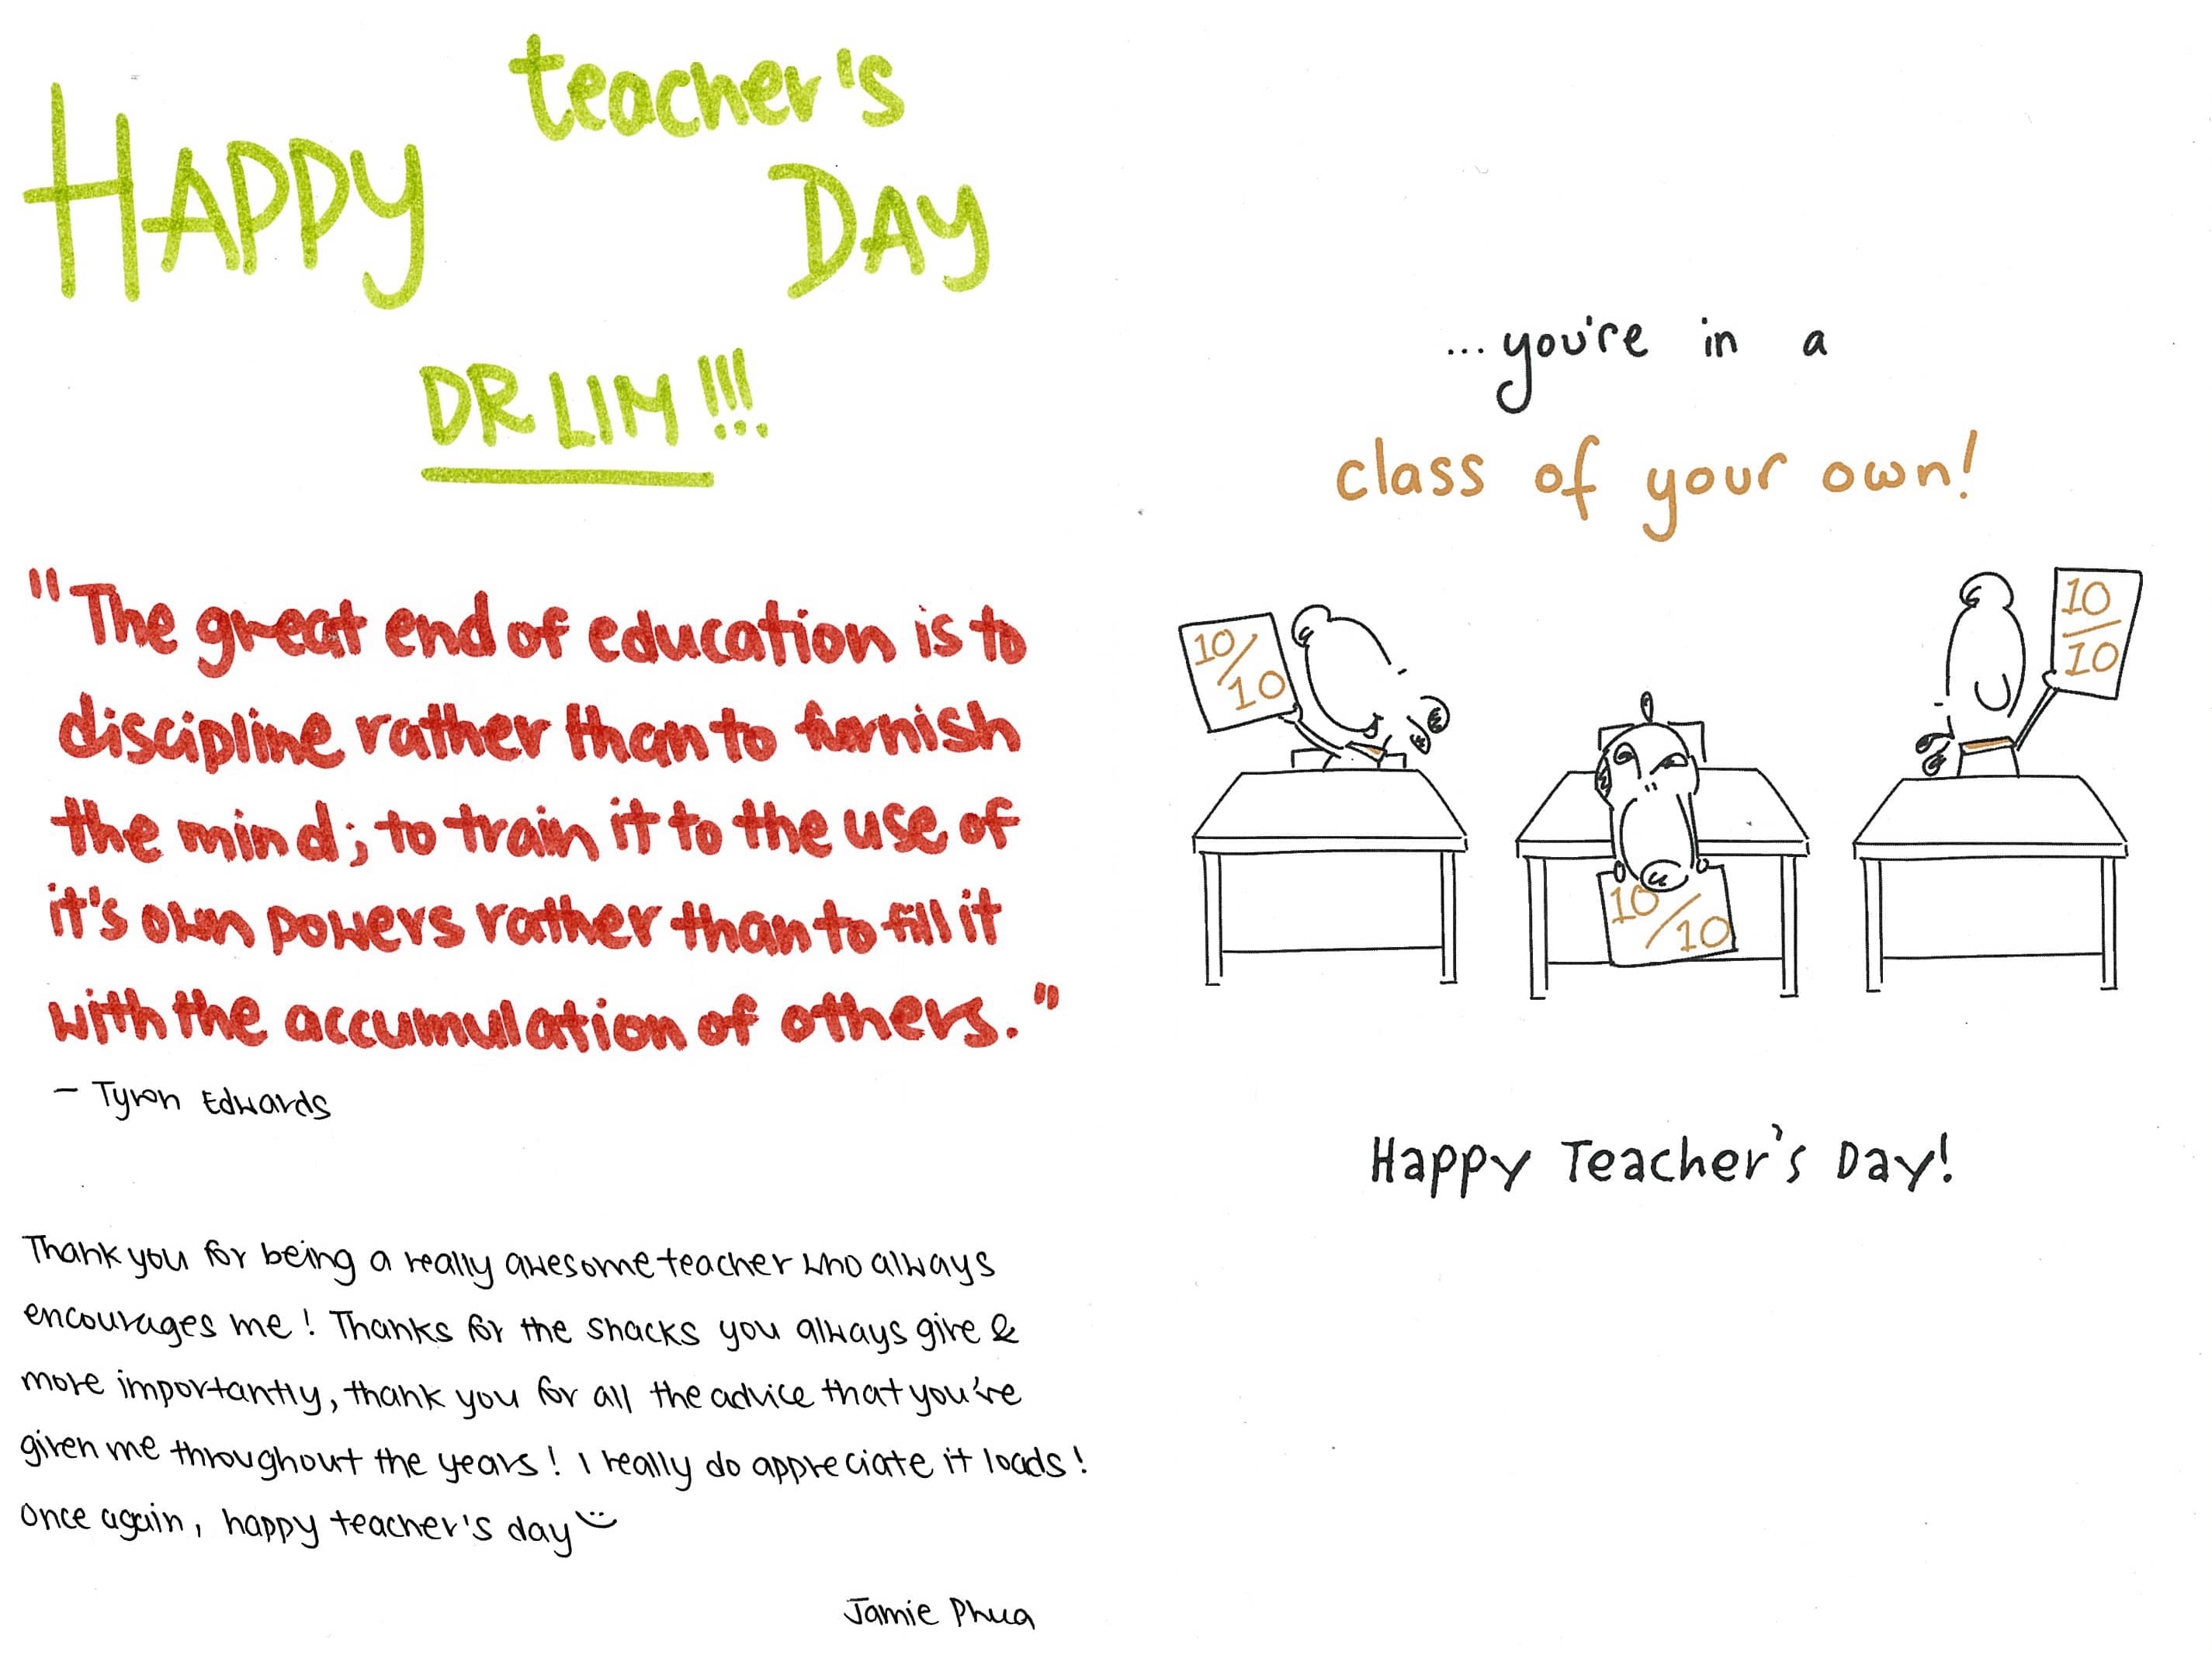 HAPPY teacher's DAY
DR LIM!!!
"The great end of education is to
discipline rather than to furnish
the mind; to train it to the use of
it's own powers rather than to fill it
with the accumulation of others."
- Tyron Edwards
Thank you for being a really awesome teacher who always
encourages me! Thanks for the snacks you always give &
more importantly, thank you for all the advice that you've
given me throughout the years! I really do appreciate it loads!
Once again, happy teacher's day
Jamie Phua
...you're in a
class of your own!
10/10
10/10
10/10
Happy Teacher's Day!